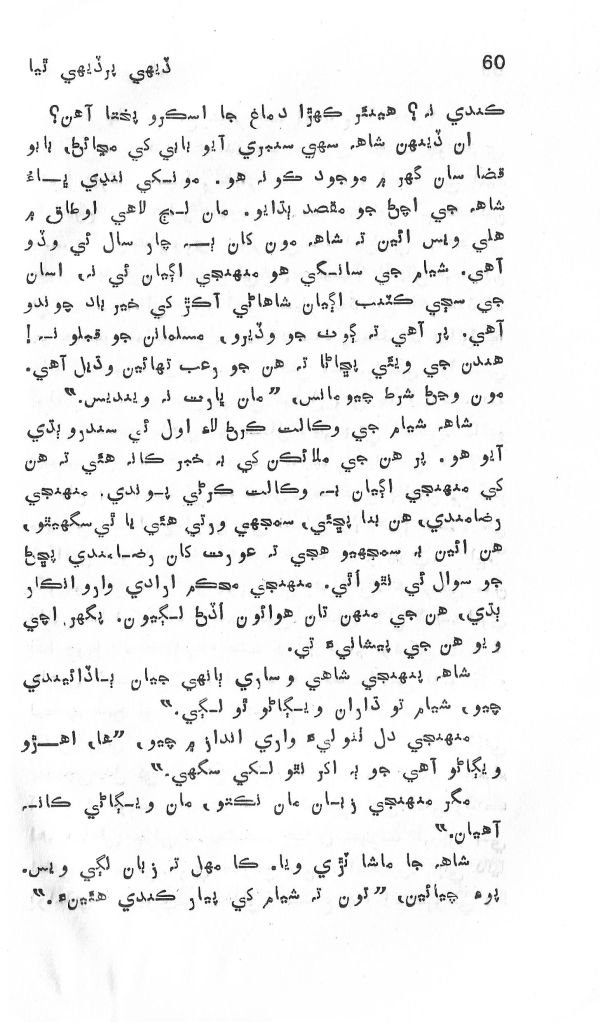 60
ڏيهي پرڏيهي ٿيا
ڪندي نہ؟ هينئر ڪهڙا دماغ جا اسڪرو پختا آهن؟
ان ڏينهن شاهہ سهي سنبري آيو بابي کي مڃائڻ، بابو
قضا سان گهر ۾ موجود ڪو نہ هو. مونکي ننڍي ڀاءُ
شاهہ جي اچڻ جو مقصد ٻڌايو. مان لهي لاهي اوطاق ۾
هلي ويس ائين تہ شاهہ مون کان بہ چار سال ئي وڏو
آهي. شيام جي سانگي هو منهنجي اڳيان ئي نہ، اسان
جي سڄي ڪٽنب اڳيان شاهاڻي آڪڙ کي خير باد چوندو
آهي. پر آهي تہ ڳوٺ جو وڏيرو، مسلمانن جو قبلو نہ!
هندن جي ويٺي پڇاڻا تہ هن جو رعب تهائين وڌيل آهي.
مون وڃڻ شرط چيومانس، ”مان ڀارت نہ وينديس.“
شاهہ شيام جي وڪالت ڪرڻ لاءِ اول ئي سندرو ٻڌي
آيو هو. پر هن جي ملائڪن کي بہ خبر ڪانہ هئي تہ هن
کي منهنجي اڳيان بہ وڪالت ڪرڻي پوندي. منهنجي
رضامندي، هن بنا پڇئي، سمجهي ورتي هئي يا ٿي سگهيٿو،
هن ائين بہ سمجهيو هجي تہ عورت کان رضامندي پڇڻ
جو سوال ئي نٿو اٿي. منهنجي محڪم ارادي وارو انڪار
ٻڌي، هن جي منهن تان هوائون اڏڻ لڳيون. پگهر اچي
ويو هن جي پيشانيءَ تي.
شاهہ پنهنجي شاهي وساري ٻانهي جيان ٻاڏائيندي
چيو، شيام تو ڌاران ويڳاڻو ٿو لڳي.“
منهنجي دل لنوليءَ واري انداز ۾ چيو، ”ها، اهڙو
ويڳاڻو آهي جو ٻہ اکر نٿو لکي سگهي.“
مگر منهنجي زبان مان نڪتو، مان ويڳاڻي ڪانہ
آهيان.“
شاهہ جا ماشا ٽڙي ويا. ڪا مهل تہ زبان لڳي ويس.
پوءِ چيائين، ”تون تہ شيام کي پيار ڪندي هئينءَ.“